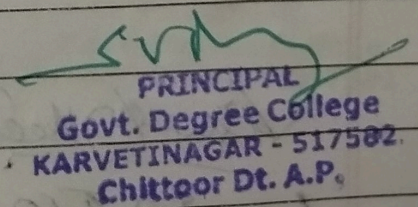 PRINCIPAL
Govt. Degree College
KARVETINAGAR - 517582.
Chittoor Dt. A.P.